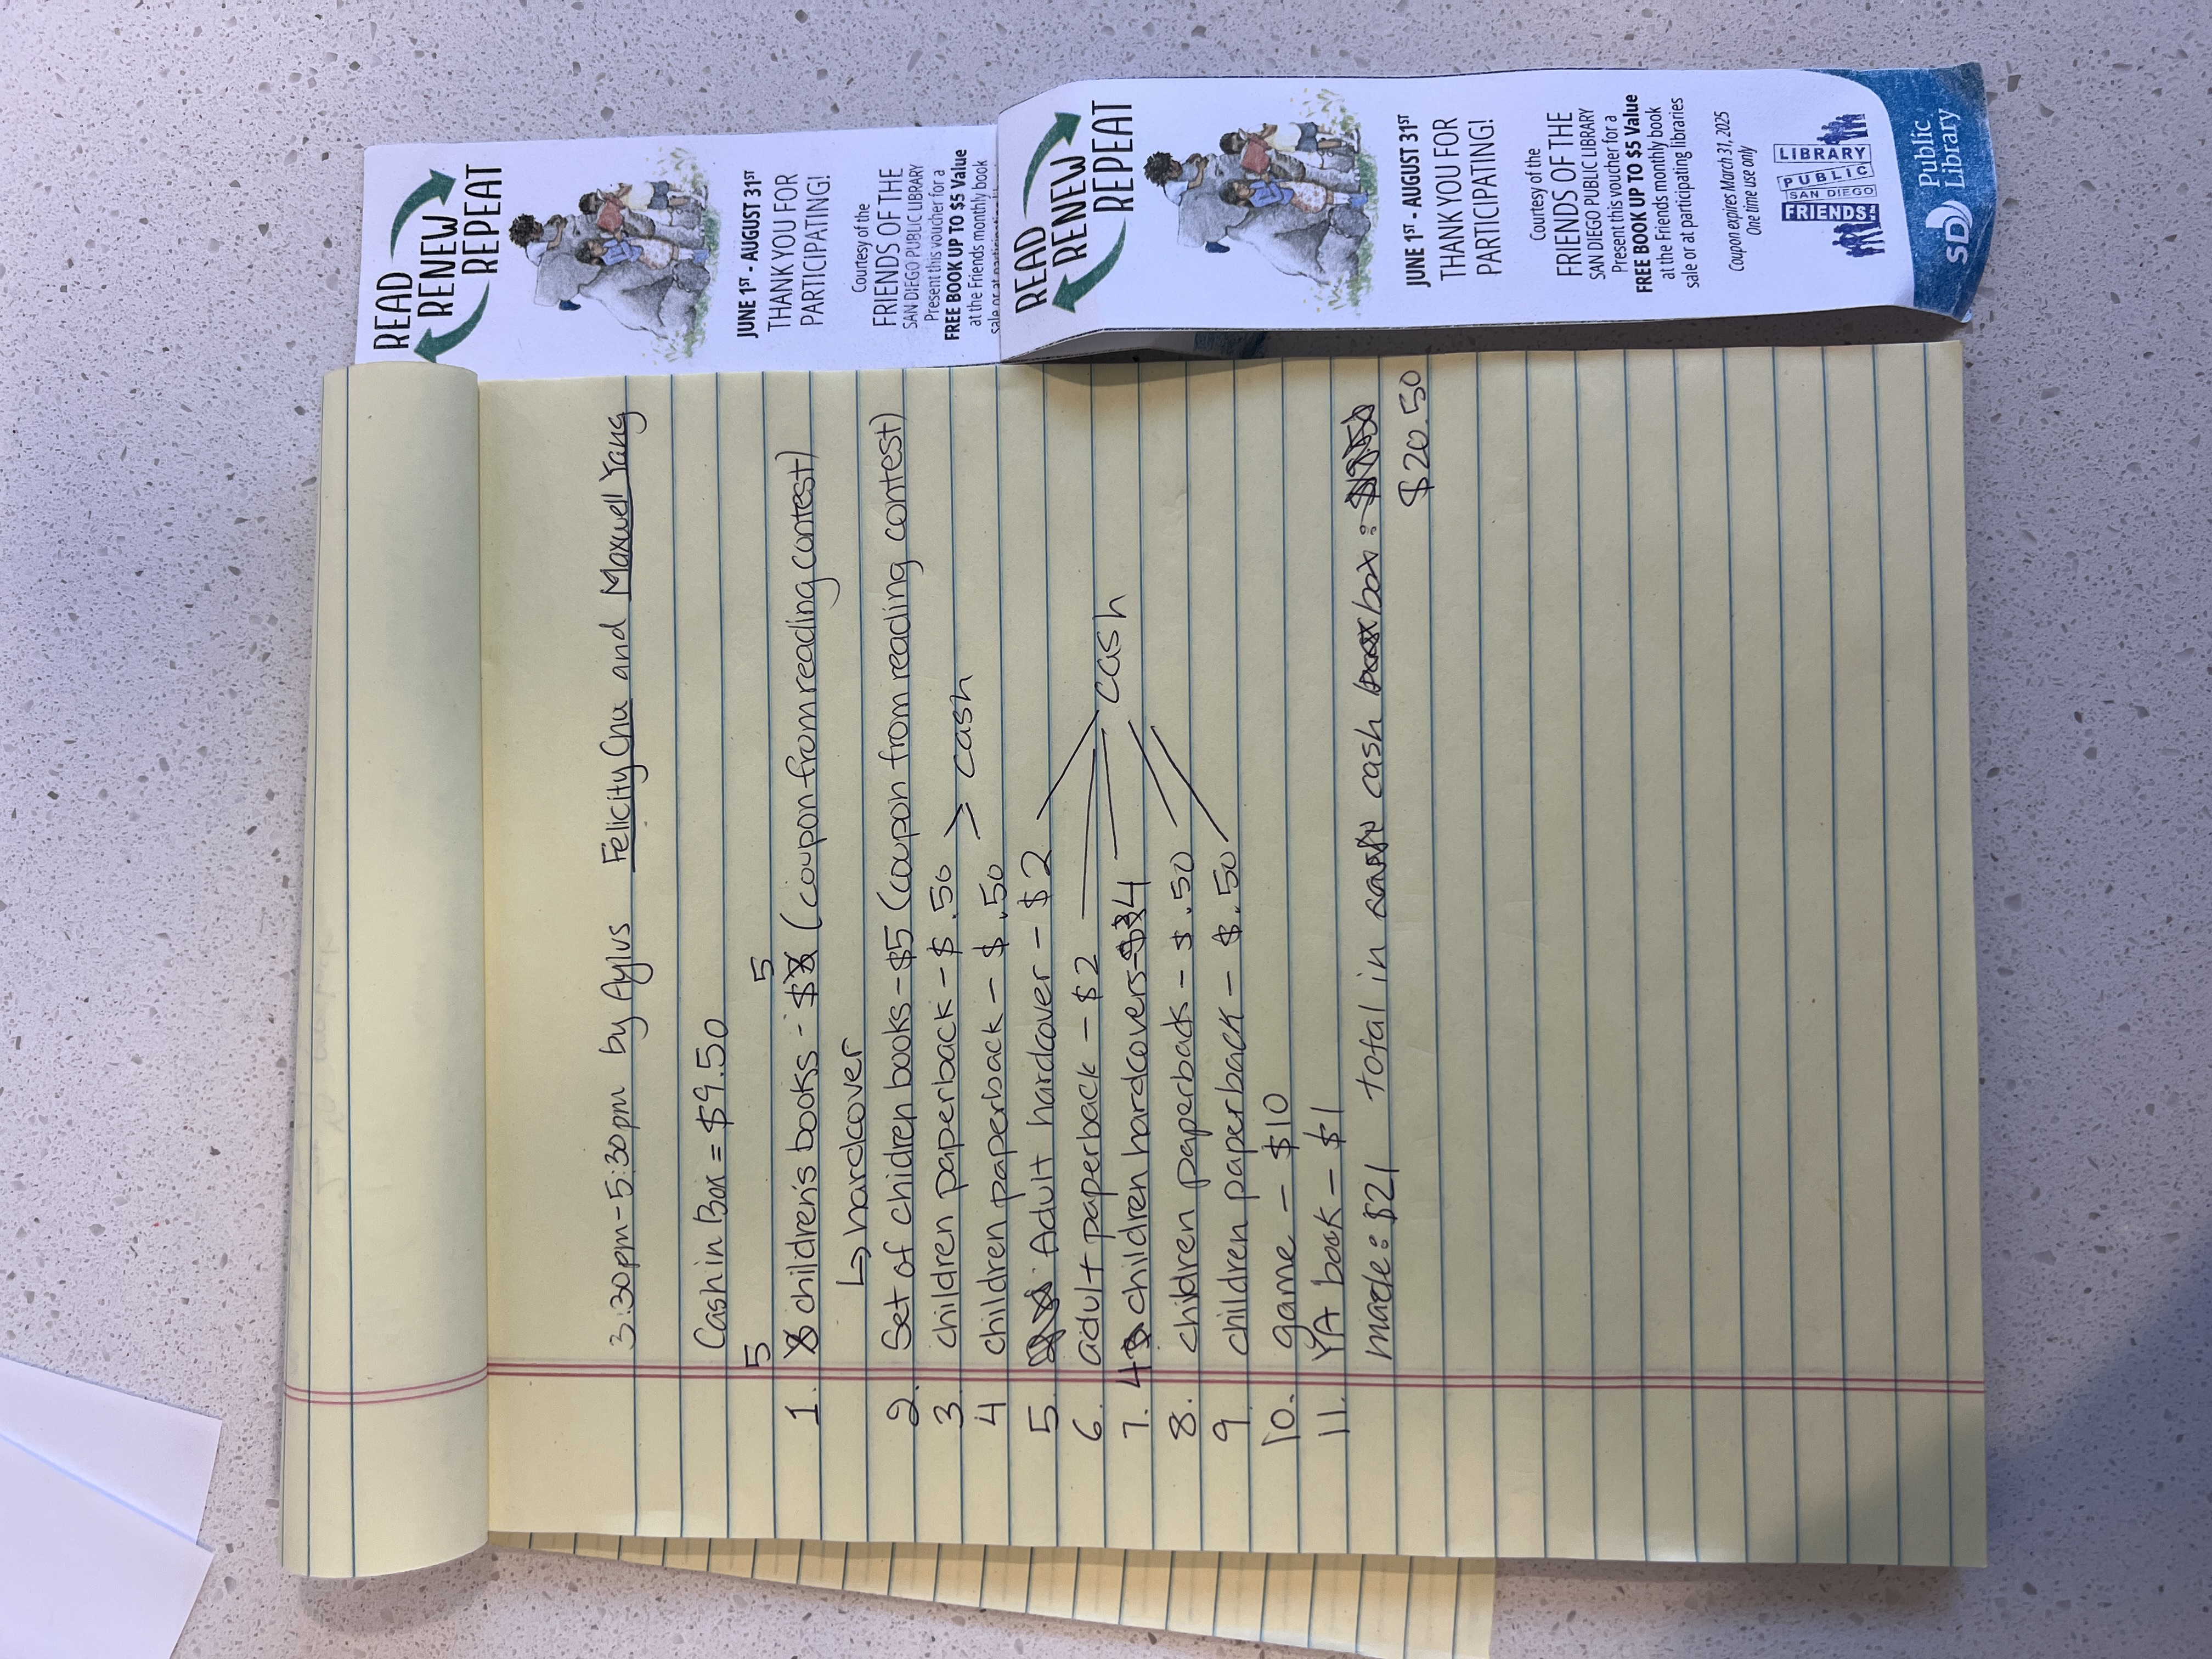 3:30pm-5:30pm by Aylus Felicity Chu and Maxwell Yang
Cash in Box = $9.50
5 5
1. children's books - $ (coupon from reading contest)
↳ hardcover
2. Set of children books - $5 (coupon from reading contest)
3. children paperback - $ .50
> cash
4 children paperback - $ .50
5. Adult hardcover - $2
6. adult paperback - $2
cash
7. 4 children hardcovers - $4
8. children paperback - $ .50
9. children paperback - $ .50
10. game - $10
11. YA book - $1
made: $21 total in cash box:
$20.50
READ
RENEW
REPEAT
JUNE 1ST - AUGUST 31ST
THANK YOU FOR
PARTICIPATING!
Courtesy of the
FRIENDS OF THE
SAN DIEGO PUBLIC LIBRARY
Present this voucher for a
FREE BOOK UP TO $5 Value
at the Friends monthly book
READ
RENEW
REPEAT
JUNE 1ST - AUGUST 31ST
THANK YOU FOR
PARTICIPATING!
Courtesy of the
FRIENDS OF THE
SAN DIEGO PUBLIC LIBRARY
Present this voucher for a
FREE BOOK UP TO $5 Value
at the Friends monthly book
sale or at participating libraries
Coupon expires March 31, 2025
One time use only
LIBRARY
PUBLIC
SAN DIEGO
FRIENDS
SD Public
Library